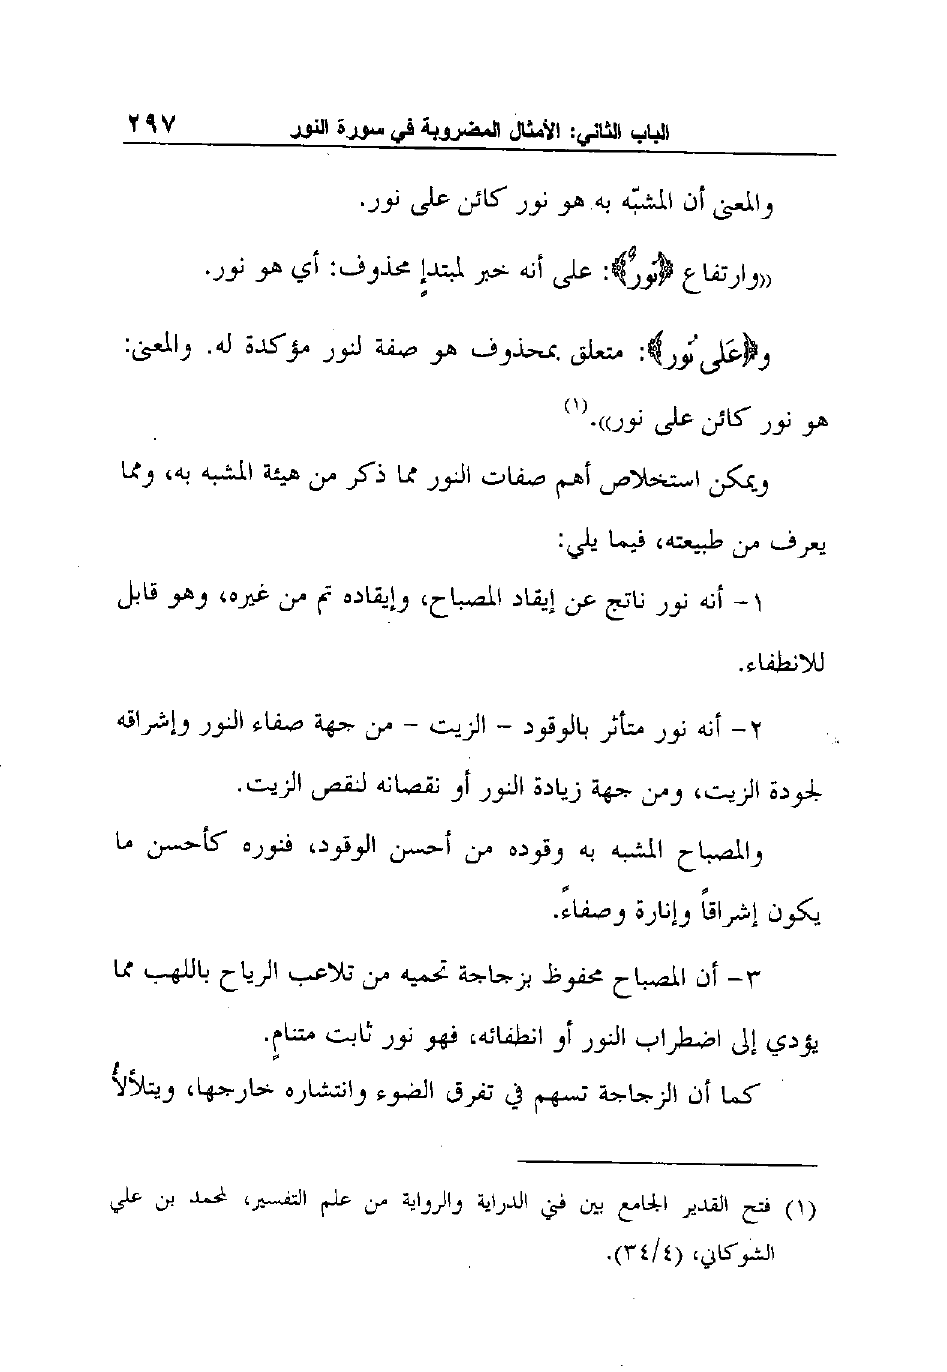 الباب الثاني: الأمثال المضروبة في سورة النور ٢٩٧
والمعنى أن المشبّه به هو نور كائن على نور.
((وارتفاع ﴿نُورٌ﴾: على أنه خبر لمبتدإٍ محذوف: أي هو نور.
و﴿عَلَى نُور﴾: متعلق بمحذوف هو صفة لنور مؤكدة له. والمعنى:
هو نور كائن على نور)).(١)
ويمكن استخلاص أهم صفات النور مما ذكر من هيئة المشبه به، ومما
يعرف من طبيعته، فيما يلي:
١- أنه نور ناتج عن إيقاد المصباح، وإيقاده تم من غيره، وهو قابل
للانطفاء.
٢- أنه نور متأثر بالوقود - الزيت - من جهة صفاء النور وإشراقه
لجودة الزيت، ومن جهة زيادة النور أو نقصانه لنقص الزيت.
والمصباح المشبه به وقوده من أحسن الوقود، فنوره كأحسن ما
يكون إشراقاً وإنارة وصفاءً.
٣- أن المصباح محفوظ بزجاجة تحميه من تلاعب الرياح باللهب مما
يؤدي إلى اضطراب النور أو انطفائه، فهو نور ثابت متنامٍ.
كما أن الزجاجة تسهم في تفرق الضوء وانتشاره خارجها، ويتلألأُ
(١) فتح القدير الجامع بين فني الدراية والرواية من علم التفسير، لمحمد بن علي
الشوكاني، (٣٤/٤).